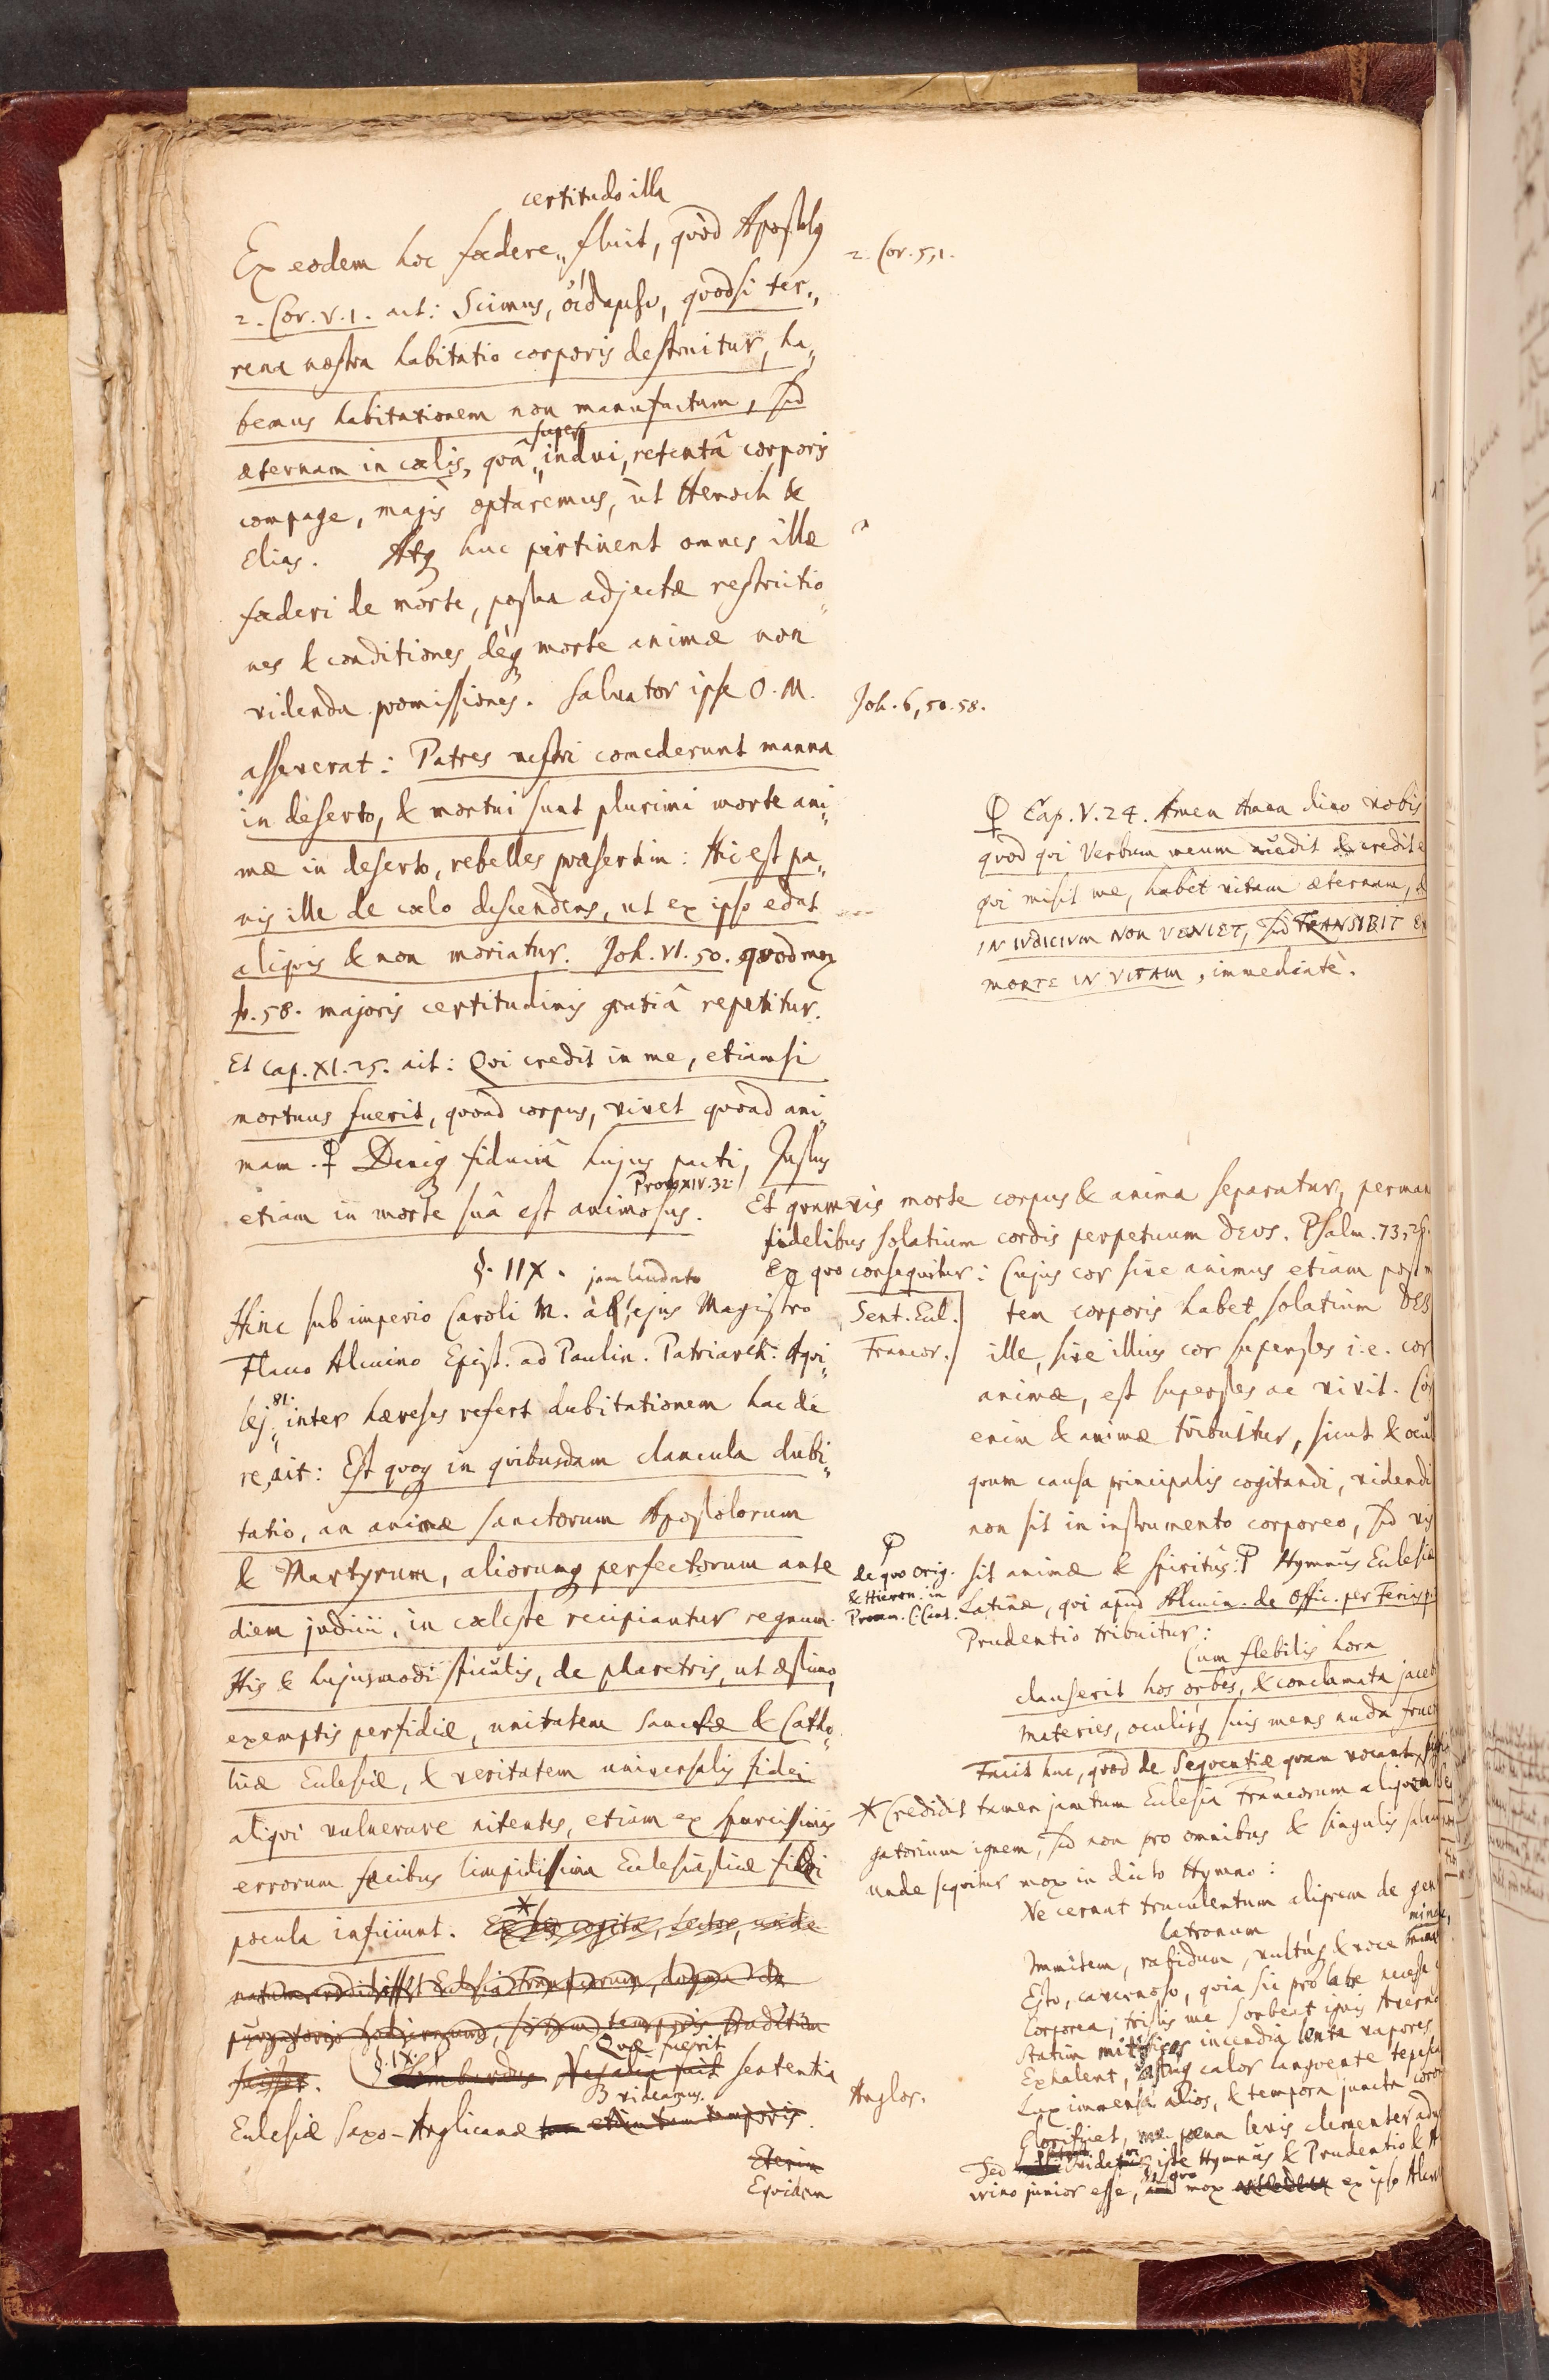 certitudo illa
Ex eodem hoc fœdere „ fluit, quòd Apostolus
2. Cor. V. 1. ait: Scimus, οἴδαμεν, quòd si ter„
rena nostra habitatio corporis destruitur, ha„
bemus habitationem non manufactam, sed
super
æternam in cælis, quâ „ indui, retentâ corporis
compage, magis optaremus, ùt Henoch &
Elias. Atq huc pertinent omnes illæ
fœderi de morte, postea adjectæ restrictio„
nes & conditiones, deq morte animæ non
videnda promissiones. Salvator ipse O. M.
asseverat: Patres vestri comederunt manna
in deserto, & mortui sunt plurimi morte ani„
mæ in deserto, rebelles præsertim: Hic est pa„
nis ille de cælo descendens, ut ex ipso edat
aliquis & non moriatur. Joh. VI. 50. quod mox
v. 58. majoris certitudinis gratiâ repetitur.
Et Cap. XI. 25. ait: Qvi credit in me, etiamsi
mortuus fuerit, quoad corpus, vivet quoad ani„
mam. Deniq fiduciâ hujus pacti, Justus
Prov. XIV. 32.
etiam in morte suâ est animosus.
§. IIX.
jam laudato
Hinc sub imperio Caroli M. ab ejus Magistro
Flacco Alcuino Epist. ad Paulin. Patriarch. Aqvi„
81.
lej. „ inter hæreses refert dubitationem hac de
re, ait: Est quoq in quibusdam clancula dubi„
tatio, an animæ sanctorum Apostolorum
& Martyrum, aliorumq perfectorum ante
diem judicii, in cæleste recipiantur regnum.
His & hujusmodi spiculis, de pharetris, ut æstimo,
exemptis perfidiæ, unitatem sanctæ & Catho„
licæ Ecclesiæ, & veritatem universalis fidei
aliqui vulnerare nitentes, etiam ex spurcissimis
errorum fæcibus limpidissima Ecclesiasticæ fidei
pocula inficiunt. * Ex his cogita, Lector, unde
purgatorio hodiernum, temporis traditum
fuisset. §. IX.
Quæ fuerit
sententia
videamus.
Ecclesiæ Saxo-Anglicanæ etiam tum temporis.
Eterim
Equidem
2. Cor. 5, 1.
Joh. 6, 50. 58.
Cap. V. 24. Amen Amen dico vobis
quod qvi Verbum meum audit & credit e
qvi misit me, habet vitam æternam, &
IN IUDICIUM NON VENIET, sed TRANSIBIT EX
MORTE IN VITAM, immediatè.
Et quamvis morte corpus & anima separatur, perman
fidelibus solatium cordis perpetuum DEUS. Psalm. 73, 26.
Ex quo consequitur: Cujus cor sive animus etiam post m
tem corporis habet solatium DEU
ille, sive illius cor superstes i. e. cor
animæ, est superstes ac vivit. Cor
enim & animæ tribuitur, sicut & ocul
quum causa principalis cogitandi, videndi
non sit in instrumento corporeo, sed vis
sit animæ & spiritûs. Hymnus Ecclesiæ
Latinæ, qvi apud Alcuin. de Offic. per Ferias p
Prudentio tribuitur:
Sent. Eccl.
Francor.
de quo Orig.
& Hieron. in
Proœm. C. Cant.
Cum flebilis hora
clauserit hos orbes, & conclamata jacebit
Materies, oculisq suis mens nuda fruetur
Facit huc, quod de Sequentiæ quam vocant,
* Credidit tamen jam tum Ecclesia Francorum aliquem
gatorium ignem, sed non pro omnibus & singulis
unde sequitur mox in dicto Hymno:
Ne cernat truculentum aliquem de gen
latronum
Immitem, rabidum, vultuq & voce minac
Esto, cavernoso, quia sic pro labe necesse
Corporea, tristis me sorbeat ignis Averno
Statim mitificos incendia lenta vapores
Exhalent, æstuq calor languente tepescat
Lux immensa alios, & tempora juncta coro
Glorificet, me pœna levis clementer adu
Sed videtur iste Hymnus & Prudentio & A
cuino junior esse, mox ex ipso Alcu
Anglor.